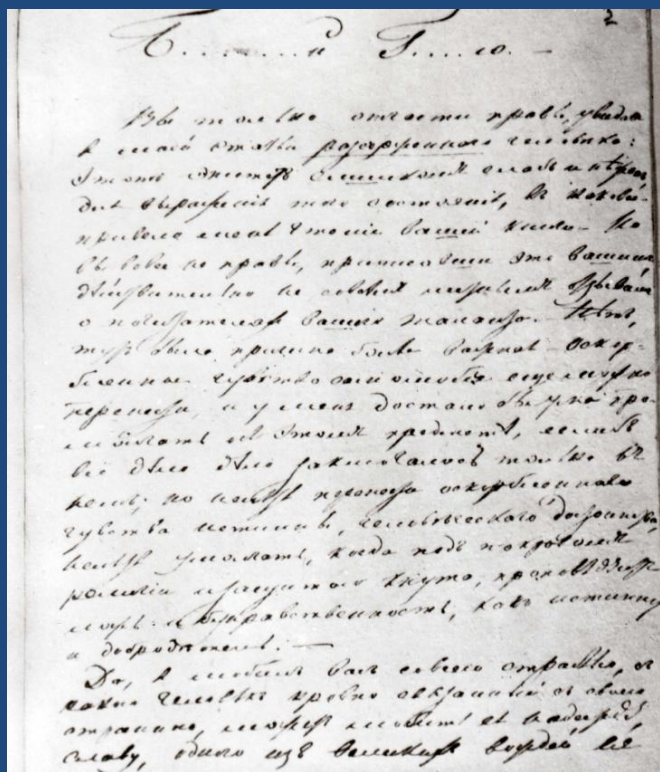 2
Б.......й Г.....ю. —
Вы только отчасти правы, увидавъ
въ моей статьѣ разсерженного человѣка:
Этотъ эпитетъ слишкомъ слабъ и нѣженъ
для выраженія того состоянія, въ какое
привело меня чтеніе вашей книги. Но
вы вовсе не правы, приписавши это вашимъ
дѣйствительно не совсѣмъ лестнымъ отзывамъ
о почитателяхъ вашего таланта. Нѣтъ,
тутъ была причина болѣе важная. Оскор-
бленное чувство самолюбія еще можно
перенести, и у меня достало бы ума про-
молчать объ этомъ предметѣ, еслибъ
все дѣло заключалось только въ
немъ; но нельзя перенести оскорбленнаго
чувства истины, человѣческаго достоинства,
нельзя умолчать, когда подъ покровомъ
религіи и защитою кнута, проповѣдуютъ
ложь и безнравственность, какъ истину
и добродѣтель. —
Да, я любилъ васъ со всею страстью, съ
какою человѣкъ кровно связанный съ своею
страною, можетъ любить ея надежду,
славу, одного изъ великихъ вождей ея